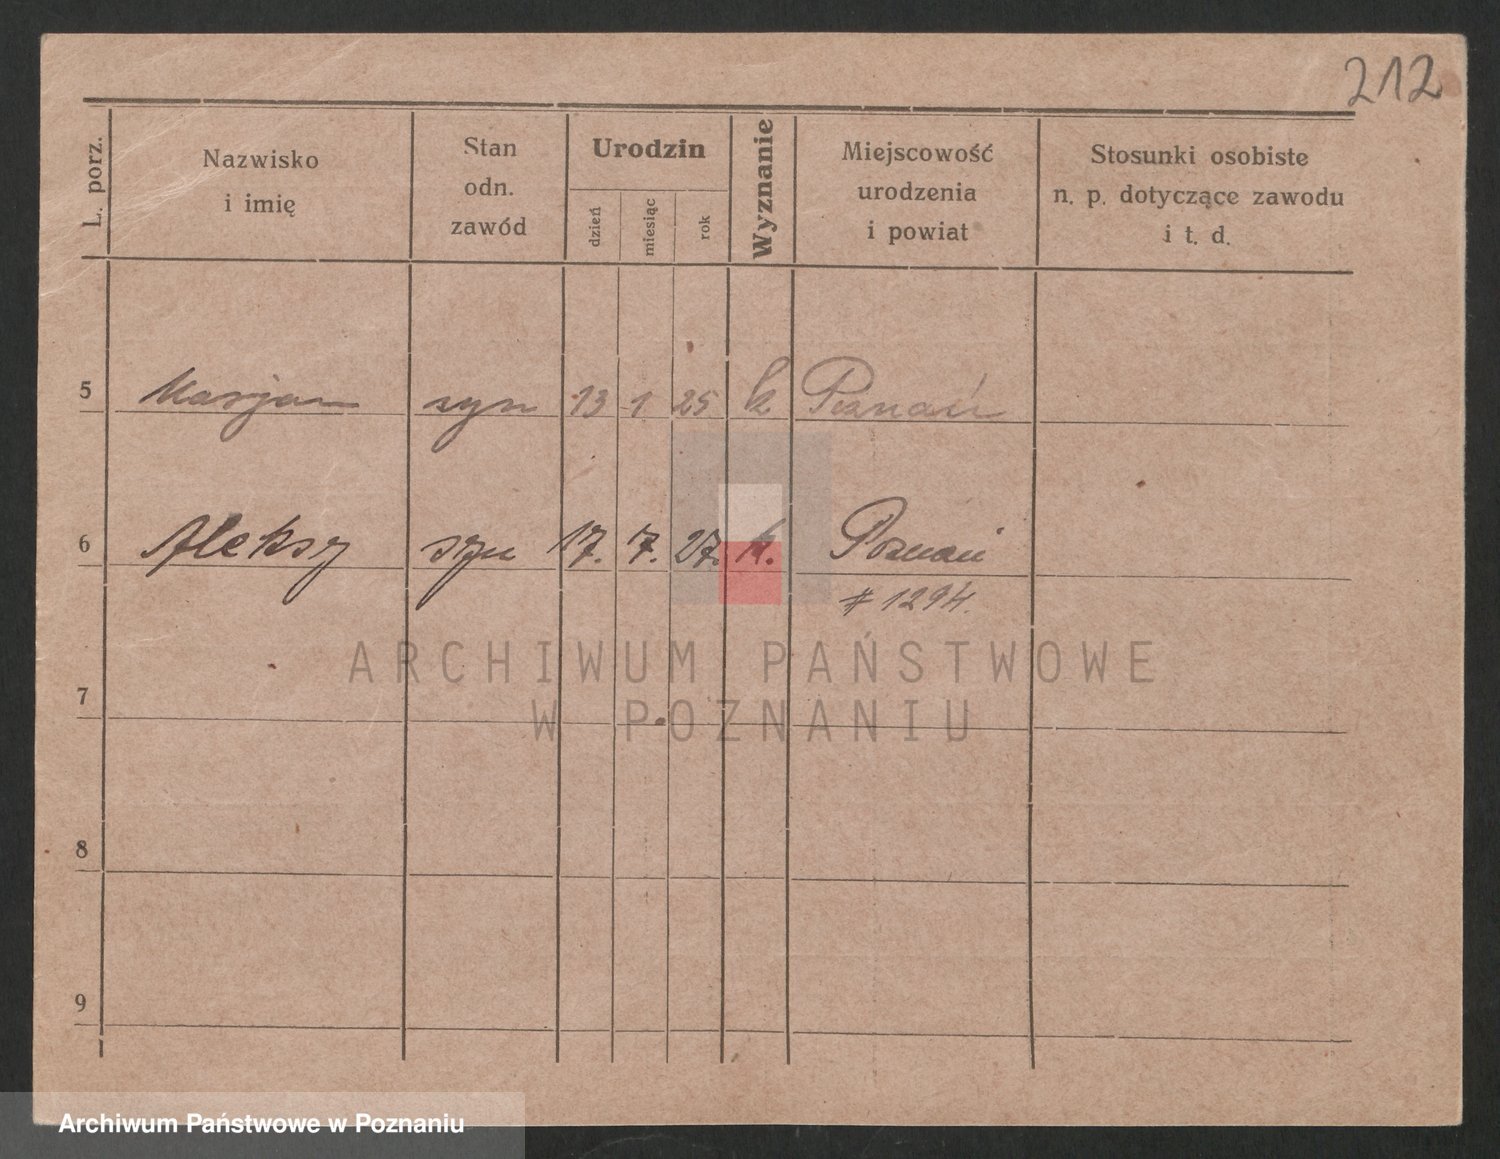 212
L. porz.
Nazwisko
i imię
Stan
odn.
zawód
Urodzin
dzień
miesiąc
rok
Wyznanie
Miejscowość
urodzenia
i powiat
Stosunki osobiste
n. p. dotyczące zawodu
i t. d.
5 Marjan syn 13 1 25 k Poznań
6 Aleksy syn 17. 7. 27. k. Poznań
# 1294.
ARCHIWUM PAŃSTWOWE
W POZNANIU
7
8
9
Archiwum Państwowe w Poznaniu